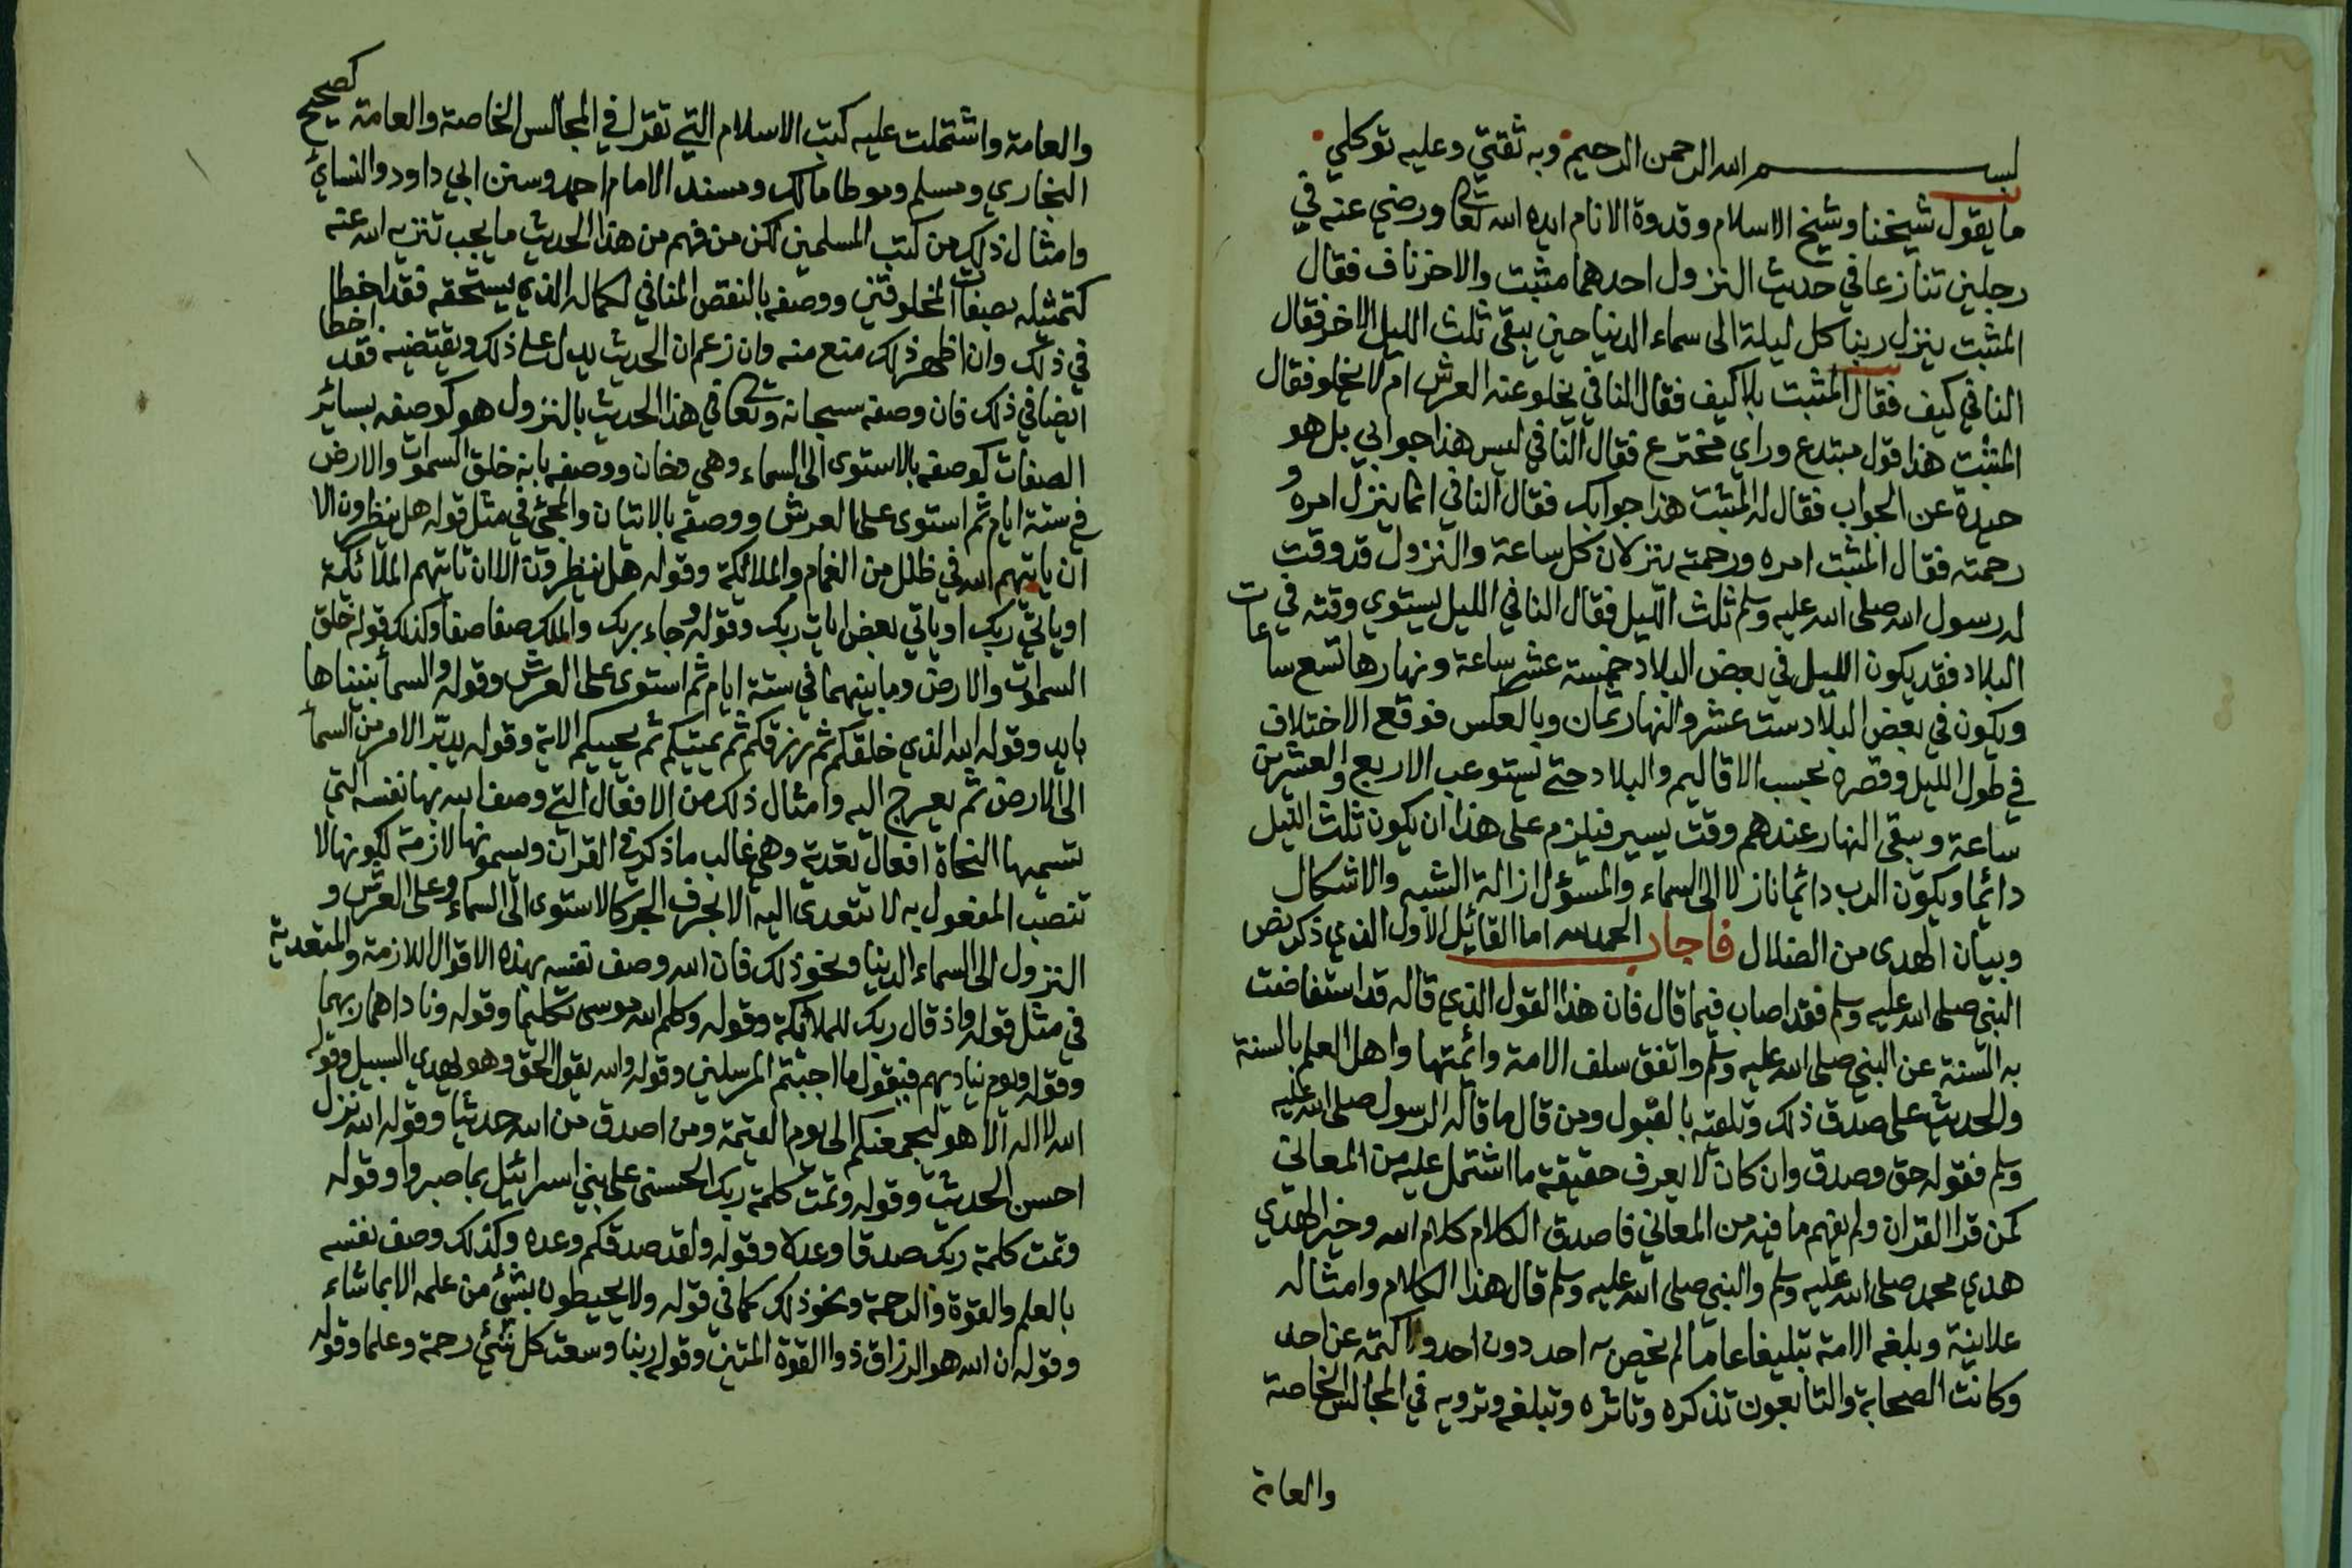 بسم الله الرحمن الرحيم وبه ثقتي وعليه توكلي
ما يقول شيخنا وشيخ الاسلام وقدوة الانام ايده الله تعالى ورضي عنه في
رجلين تنازعا في حديث النزول احدهما مثبت والاخر ناف فقال
المثبت ينزل ربنا كل ليلة الى سماء الدنيا حين يبقى ثلث الليل الاخر فقال
النافي كيف فقال المثبت بلا كيف فقال النافي يخلو عنه العرش ام لا يخلو فقال
المثبت هذا قول مبتدع وراي مخترع فقال النافي ليس هذا جوابي بل هو
حيدة عن الجواب فقال له المثبت هذا جوابك فقال النافي انما ينزل امره و
رحمته فقال المثبت امره ورحمته ينزلان كل ساعة والنزول قد وقت
له رسول الله صلى الله عليه وسلم ثلث الليل فقال النافي الليل يستوي وقته في
البلاد فقد يكون الليل في بعض البلاد خمسة عشر ساعة ونهارها تسع ساعات
ويكون في بعض البلاد ست عشر والنهار ثمان وبالعكس فوقع الاختلاف
في طول الليل وقصره بحسب الاقاليم والبلاد حتى تستوعب الاربع والعشرين
ساعة ويبقى النهار عندهم وقت يسير فيلزم على هذا ان يكون ثلث الليل
دائما ويكون الرب دائما نازلا الى السماء والمسؤل ازالة الشبه والاشكال
وبيان الهدى من الضلال فاجاب الحمد لله اما القائل الاول الذي ذكر نص
النبي صلى الله عليه وسلم فقد اصاب فيما قال فان هذا القول الذي قاله قد استفاضت
به السنة عن النبي صلى الله عليه وسلم واتفق سلف الامة وائمتها واهل العلم بالسنة
والحديث على صدق ذلك وتلقيه بالقبول ومن قال ما قاله الرسول صلى الله عليه
وسلم فقوله حق وصدق وان كان لا يعرف حقيقة ما اشتمل عليه من المعاني
كمن قرا القران ولم يفهم ما فيه من المعاني فاصدق الكلام كلام الله وخير الهدي
هدي محمد صلى الله عليه وسلم والنبي صلى الله عليه وسلم قال هذا الكلام وامثاله
علانية وبلغه الامة تبليغا عاما لم يخص به احد دون احد ولا كتمه عن احد
وكانت الصحابة والتابعون تذكره وتاثره وتبلغه وترويه في المجالس الخاصة
والعامة
والعامة واشتملت عليه كتب الاسلام التي تقرا في المجالس الخاصة والعامة كصحيح
البخاري ومسلم وموطا مالك ومسند الامام احمد وسنن ابي داود والنسائي
وامثال ذلك من كتب المسلمين لكن من فهم من هذا الحديث ما يجب تنزيه الله عنه
كتمثيله بصفات المخلوقين ووصفه بالنقص المنافي لكماله الذي يستحقه فقد اخطا
في ذلك وان اظهر ذلك منع منه وان زعم ان الحديث يدل على ذلك ويقتضيه فقد اخطا
ايضا في ذلك فان وصفه سبحانه وتعالى في هذا الحديث بالنزول هو كوصفه بسائر
الصفات كوصفه بالاستوى الى السماء وهي دخان ووصفه بانه خلق السموات والارض
في ستة ايام ثم استوى على العرش ووصفه بالاتيان والمجئ في مثل قوله هل ينظرون الا
ان ياتيهم الله في ظلل من الغمام والملائكة وقوله هل ينظرون الا ان تاتيهم الملائكة
او ياتي ربك او ياتي بعض ايات ربك وقوله وجاء ربك والملك صفا صفا وكذلك قوله خلق
السموات والارض وما بينهما في ستة ايام ثم استوى على العرش وقوله والسماء بنيناها
بايد وقوله الله الذي خلقكم ثم رزقكم ثم يميتكم ثم يحييكم الاية وقوله يدبر الامر من السماء
الى الارض ثم يعرج اليه وامثال ذلك من الافعال التي وصف الله بها نفسه التي
تسميها النحاة افعال تعدية وهي غالب ما ذكر في القران ويسمونها لازمة لكونها لا
تنصب المفعول به لا يتعدى اليه الا بحرف الجر كالاستوى الى السماء وعلى العرش و
النزول الى السماء الدنيا ونحو ذلك فان الله وصف نفسه بهذه الاقوال اللازمة والمتعدية
في مثل قوله واذ قال ربك للملائكة وقوله وكلم الله موسى تكليما وقوله وناداهما ربهما
وقوله ويوم يناديهم فيقول ماذا اجبتم المرسلين وقوله والله يقول الحق وهو يهدي السبيل وقوله
الله لا اله الا هو ليجمعنكم الى يوم القيمة ومن اصدق من الله حديثا وقوله الله نزل
احسن الحديث وقوله وتمت كلمة ربك الحسنى على بني اسرائيل بما صبروا وقوله
وتمت كلمة ربك صدقا وعدلا وقوله ولقد صدقكم وعده وكذلك وصف نفسه
بالعلم والقوة والرحمة ونحو ذلك كما في قوله ولا يحيطون بشئ من علمه الا بما شاء
وقوله ان الله هو الرزاق ذو القوة المتين وقوله ربنا وسعت كل شئ رحمة وعلما وقوله